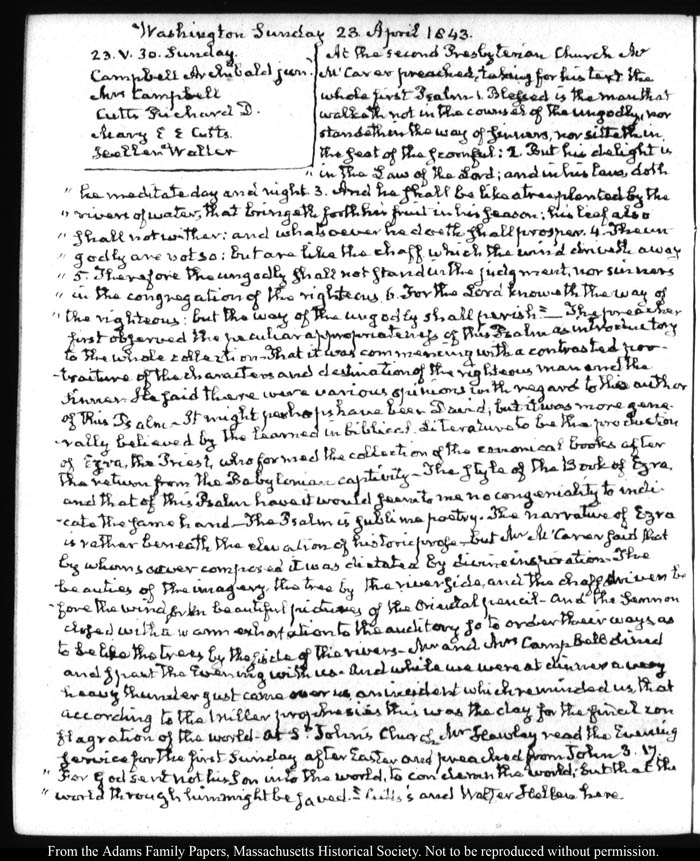 Washington Sunday 23 April 1843.
23. V. 30. Sunday.
Campbell Archibald jun.
Mrs Campbell
Cutts Richard D.
Mary E E Cutts.
Hellen Walter
At the second Presbyterian Church Mr
McCarer preached, taking for his text the
whole first Psalm 1. Blessed is the man that
walketh not in the counsel of the ungodly, nor
standeth in the way of sinners, nor sitteth in
the seat of the scornful: 2. But his delight is
" in the Law of the Lord; and in his Law, doth
" he meditate day and night. 3. And he shall be like a tree planted by the
" rivers of water, that bringeth forth his fruit in his season; his leaf also
" shall not wither; and whatsoever he doeth shall prosper. 4. The un
" godly are not so: but are like the chaff which the wind driveth away
" 5. Therefore the ungodly shall not stand in the judgment, nor sinners
" in the congregation of the righteous. 6. For the Lord knoweth the way of
" the righteous: but the way of the ungodly shall perish"— The preacher
first observed the peculiar appropriateness of this Psalm as introductory
to the whole collection—That it was commencing with a contrasted por-
-traiture of the characters and destination of the righteous man and the
sinner. He said there were various opinions with regard to the author
of this Psalm—It might perhaps have been David, but it was more gene-
-rally believed by the learned in biblical Literature to be the production
of Ezra, the Priest, who formed the collection of the canonical books after
the return from the Babylonian captivity—The style of the Book of Ezra,
and that of this Psalm have it would seem to me no congeniality to indi-
-cate the same hand—The Psalm is sublime poetry. The narrative of Ezra
is rather beneath the elevation of historic prose—but Mr McCarer said that
by whomsoever composed it was dictated by divine inspiration—The
beauties of the imagery, the tree by the river side, and the chaff driven be-
-fore the wind, form beautiful pictures of the Oriental pencil—And the Sermon
closed with a warm exhortation to the auditory so to order their ways as
to be like the trees by the side of the rivers—Mr and Mrs Campbell dined
and spent the Evening with us. And while we were at dinner a very
heavy thunder gust came over us an incident which reminded us, that
according to the Miller prophesies this was the day for the final con
flagration of the world. At St John's Church, Mr Hawley read the Evening
service for the first Sunday after Easter and preached from John 3. 17.
" For God sent not his son into the world, to condemn the world; but that the
" world through him might be saved." Cutts's and Walter Hellen here.
From the Adams Family Papers, Massachusetts Historical Society. Not to be reproduced without permission.